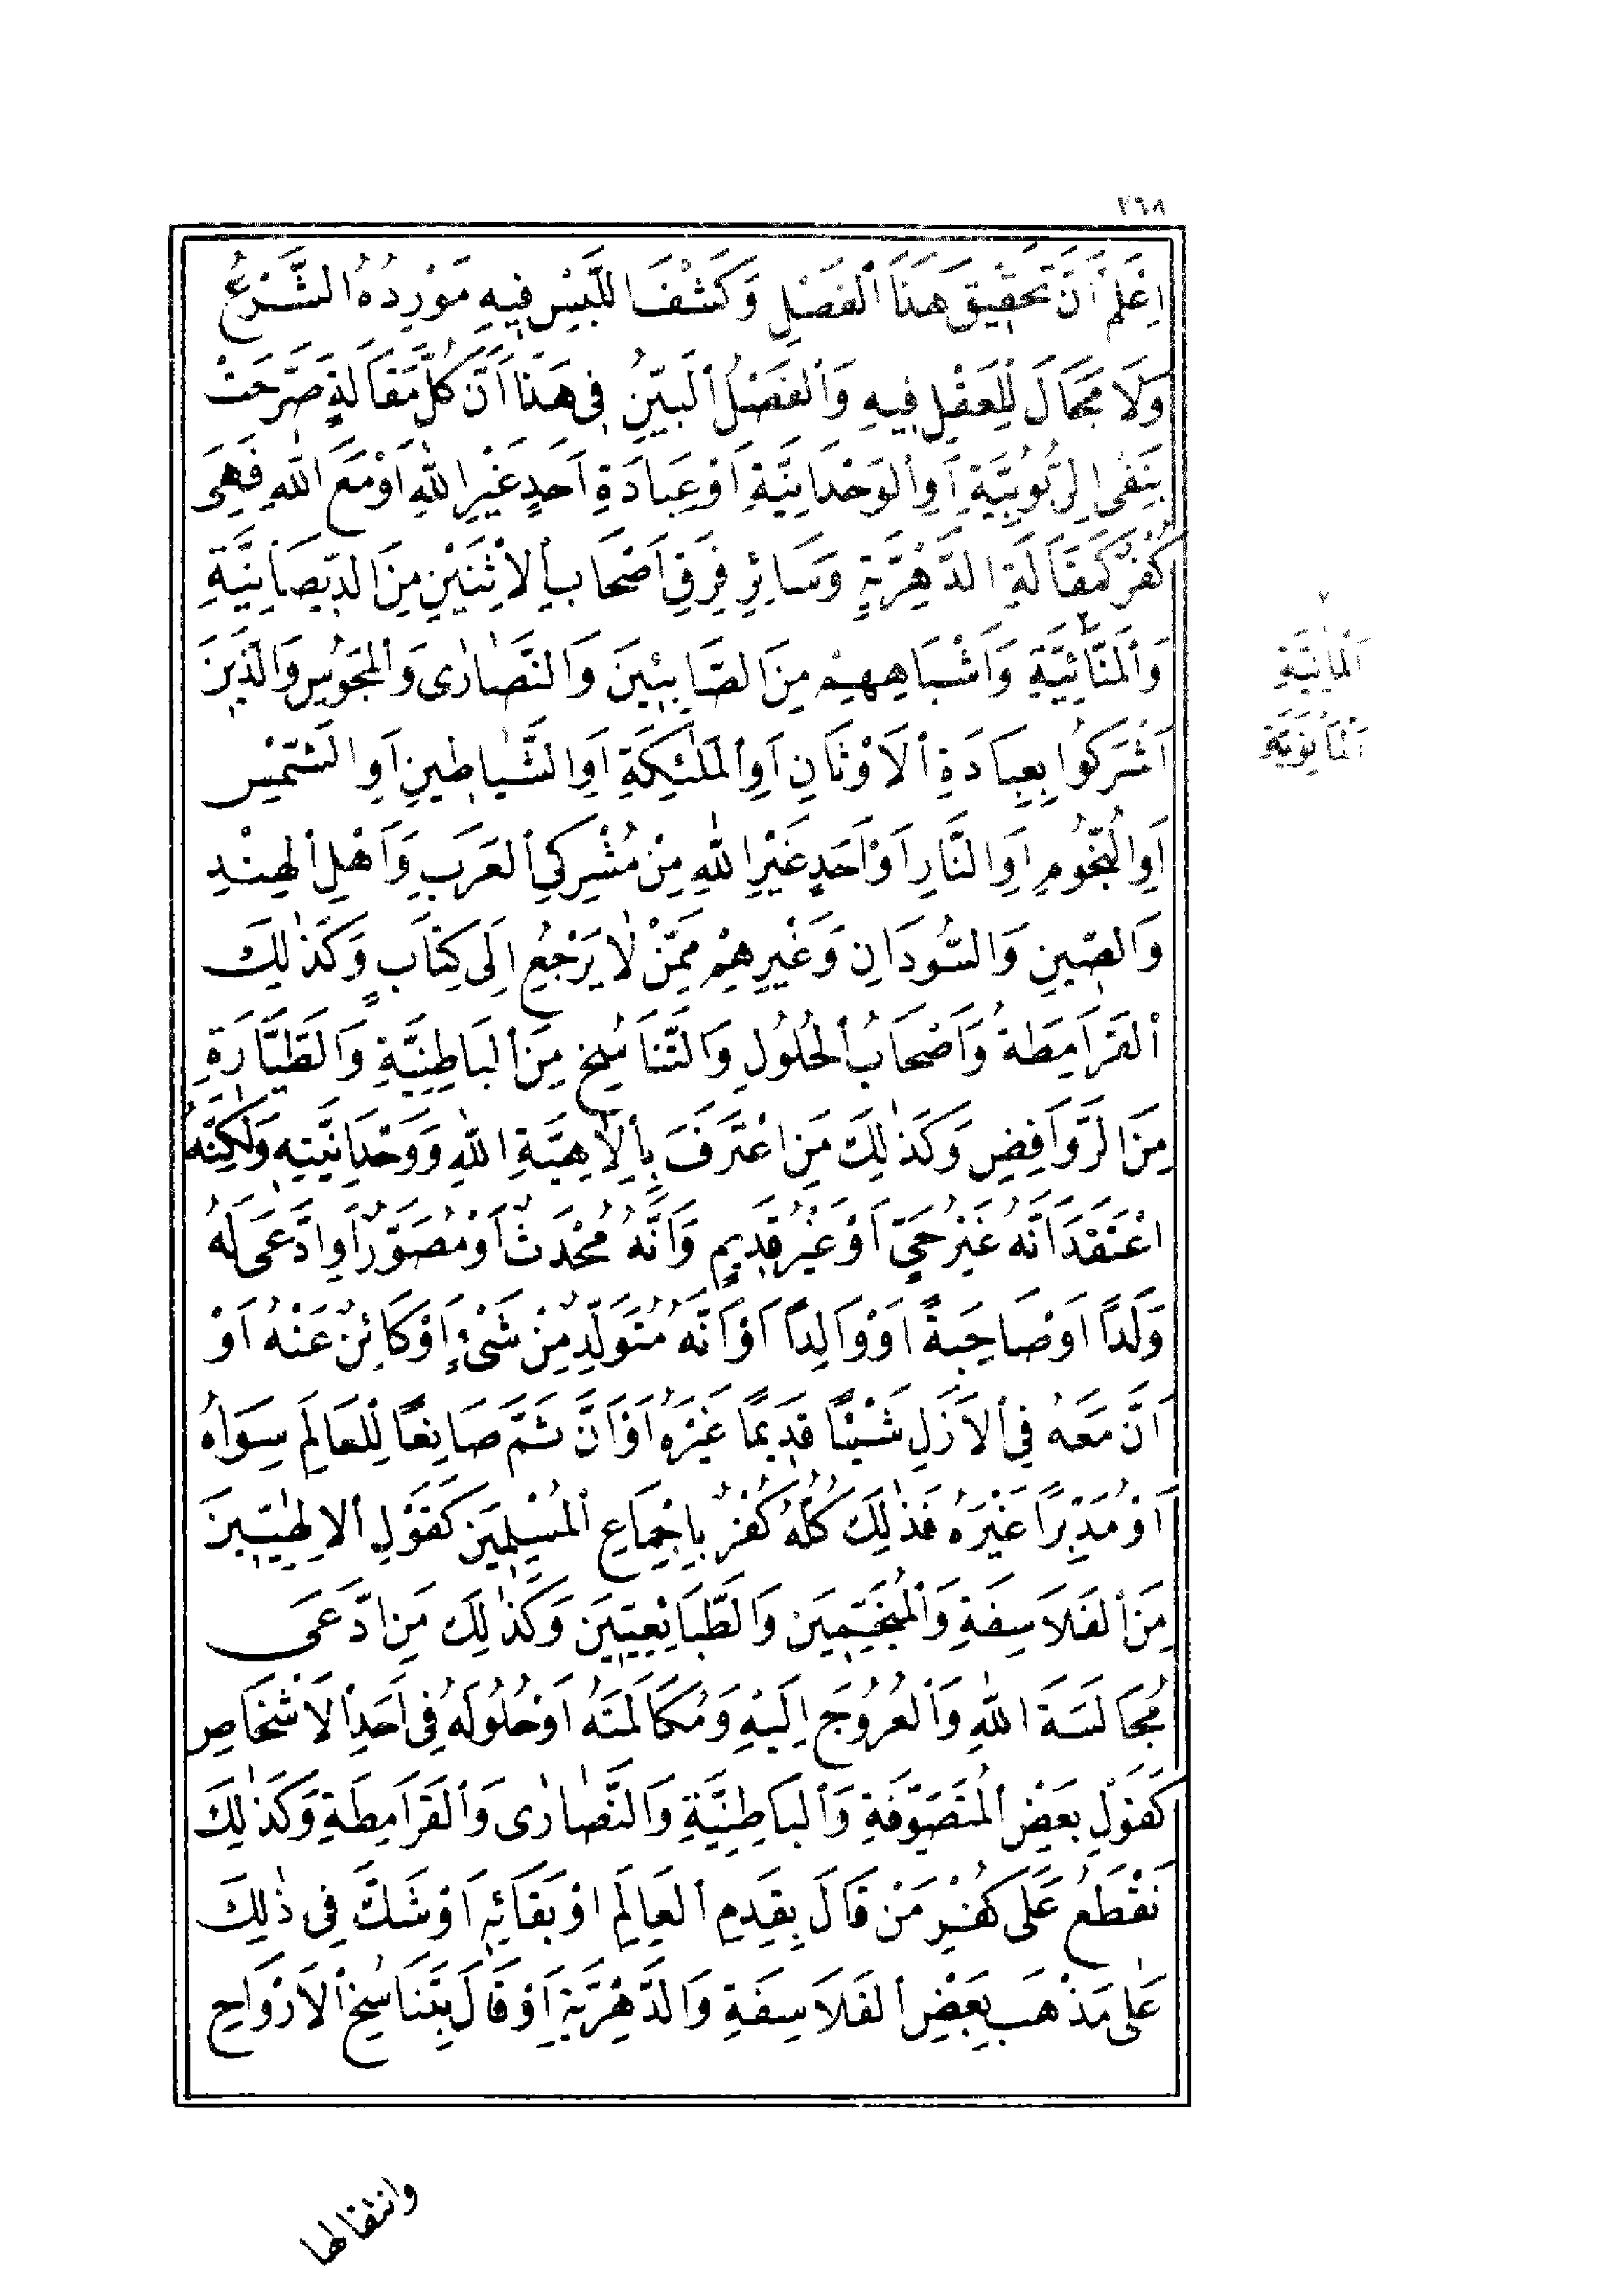 ٢٦٨
اِعْلَمْ أَنَّ تَحْقِيقَ هَذَا ٱلْفَصْلِ وَكَشْفَ اللَّبْسِ فِيهِ مَوْرِدُهُ الشَّرْعُ
وَلَا مَجَالَ لِلْعَقْلِ فِيهِ وَٱلْفَصْلُ ٱلْبَيِّنُ فِي هَذَا أَنَّ كُلَّ مَقَالَةٍ صَرَّحَتْ
بِنَفْيِ الرُّبُوبِيَّةِ أَوِ ٱلْوَحْدَانِيَّةِ أَوْ عِبَادَةِ أَحَدٍ غَيْرِ اللّٰهِ أَوْ مَعَ اللّٰهِ فَهِيَ
كُفْرٌ كَمَقَالَةِ الدَّهْرِيَّةِ وَسَائِرِ فِرَقِ أَصْحَابِ ٱلْاِثْنَيْنِ مِنَ الدِّيصَانِيَّةِ
وَٱلْمَنَّائِيَّةِ ٢ وَأَشْبَاهِهِمْ مِنَ الصَّابِئِينَ وَالنَّصَارٰى وَٱلْمَجُوسِ وَالَّذِينَ
أَشْرَكُوا بِعِبَادَةِ ٱلْأَوْثَانِ أَوِ ٱلْمَلٰئِكَةِ أَوِ الشَّيَاطِينِ أَوِ الشَّمْسِ
أَوِ النُّجُومِ أَوِ النَّارِ أَوْ أَحَدٍ غَيْرِ اللّٰهِ مِنْ مُشْرِكِي ٱلْعَرَبِ وَأَهْلِ ٱلْهِنْدِ
وَالصِّينِ وَالسُّودَانِ وَغَيْرِهِمْ مِمَّنْ لَا يَرْجِعُ إِلَى كِتَابٍ وَكَذٰلِكَ
ٱلْقَرَامِطَةُ وَأَصْحَابُ ٱلْحُلُولِ وَالتَّنَاسُخِ مِنَ ٱلْبَاطِنِيَّةِ وَالطَّيَّارَةِ
مِنَ الرَّوَافِضِ وَكَذٰلِكَ مَنِ اعْتَرَفَ بِإِلَاهِيَّةِ اللّٰهِ وَوَحْدَانِيَّتِهِ وَلٰكِنَّهُ
اعْتَقَدَ أَنَّهُ غَيْرُ حَيٍّ أَوْ غَيْرُ قَدِيمٍ وَأَنَّهُ مُحْدَثٌ أَوْ مُصَوَّرٌ أَوِ ادَّعَى لَهُ
وَلَدًا أَوْ صَاحِبَةً أَوْ وَالِدًا أَوْ أَنَّهُ مُتَوَلِّدٌ مِنْ شَيْءٍ أَوْ كَائِنٌ عَنْهُ أَوْ
أَنَّ مَعَهُ فِي ٱلْأَزَلِ شَيْئًا قَدِيمًا غَيْرَهُ أَوْ أَنَّ ثَمَّ صَانِعًا لِلْعَالَمِ سِوَاهُ
أَوْ مُدَبِّرًا غَيْرَهُ فَذٰلِكَ كُلُّهُ كُفْرٌ بِإِجْمَاعِ ٱلْمُسْلِمِينَ كَقَوْلِ ٱلْإِلٰهِيِّينَ
مِنَ ٱلْفَلَاسِفَةِ وَٱلْمُنَجِّمِينَ وَالطَّبَائِعِيِّينَ وَكَذٰلِكَ مَنِ ادَّعَى
مُجَالَسَةَ اللّٰهِ وَٱلْعُرُوجَ إِلَيْهِ وَمُكَالَمَتَهُ أَوْ حُلُولَهُ فِي أَحَدِ ٱلْأَشْخَاصِ
كَقَوْلِ بَعْضِ ٱلْمُتَصَوِّفَةِ وَٱلْبَاطِنِيَّةِ وَالنَّصَارٰى وَٱلْقَرَامِطَةِ وَكَذٰلِكَ
نَقْطَعُ عَلَى كُفْرِ مَنْ قَالَ بِقِدَمِ ٱلْعَالَمِ أَوْ بَقَائِهِ أَوْ شَكَّ فِي ذٰلِكَ
عَلٰى مَذْهَبِ بَعْضِ ٱلْفَلَاسِفَةِ وَالدَّهْرِيَّةِ أَوْ قَالَ بِتَنَاسُخِ ٱلْأَرْوَاحِ
وانتقالها
٧
اَلْمَانِيَّةِ
اَلْمَانَوِيَّةِ